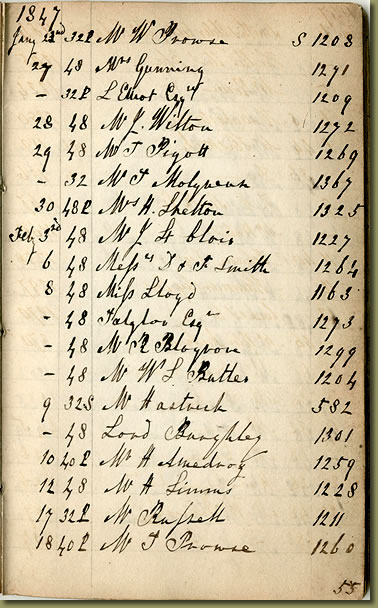 1847
Jany 22nd 32P Mr W Prowse S 1208
27 48 Mrs Gunning 1271
- 32P L Eliot Esqre 1209
28 48 Mr J. Wilton 1272
29 48 Mr T Pigott 1269
- 32 Mr T Molyneux 1367
30 48P Mrs H. Shelton 1325
Feby 3rd 48 Mr J St Clair 1227
6 48 Messrs D & F Smith 1264
8 48 Miss Lloyd 1163
- 48 Esqre 1273
- 48 Mr R Blagrove 1299
- 48 Mr W S Butler 1204
9 32S Mr 582
- 48 Lord Burghley 1301
10 40P Mr H 1259
12 48 Mr H Simms 1228
17 32P Mr Russell 1211
18 40P Mr T Prowse 1260
55